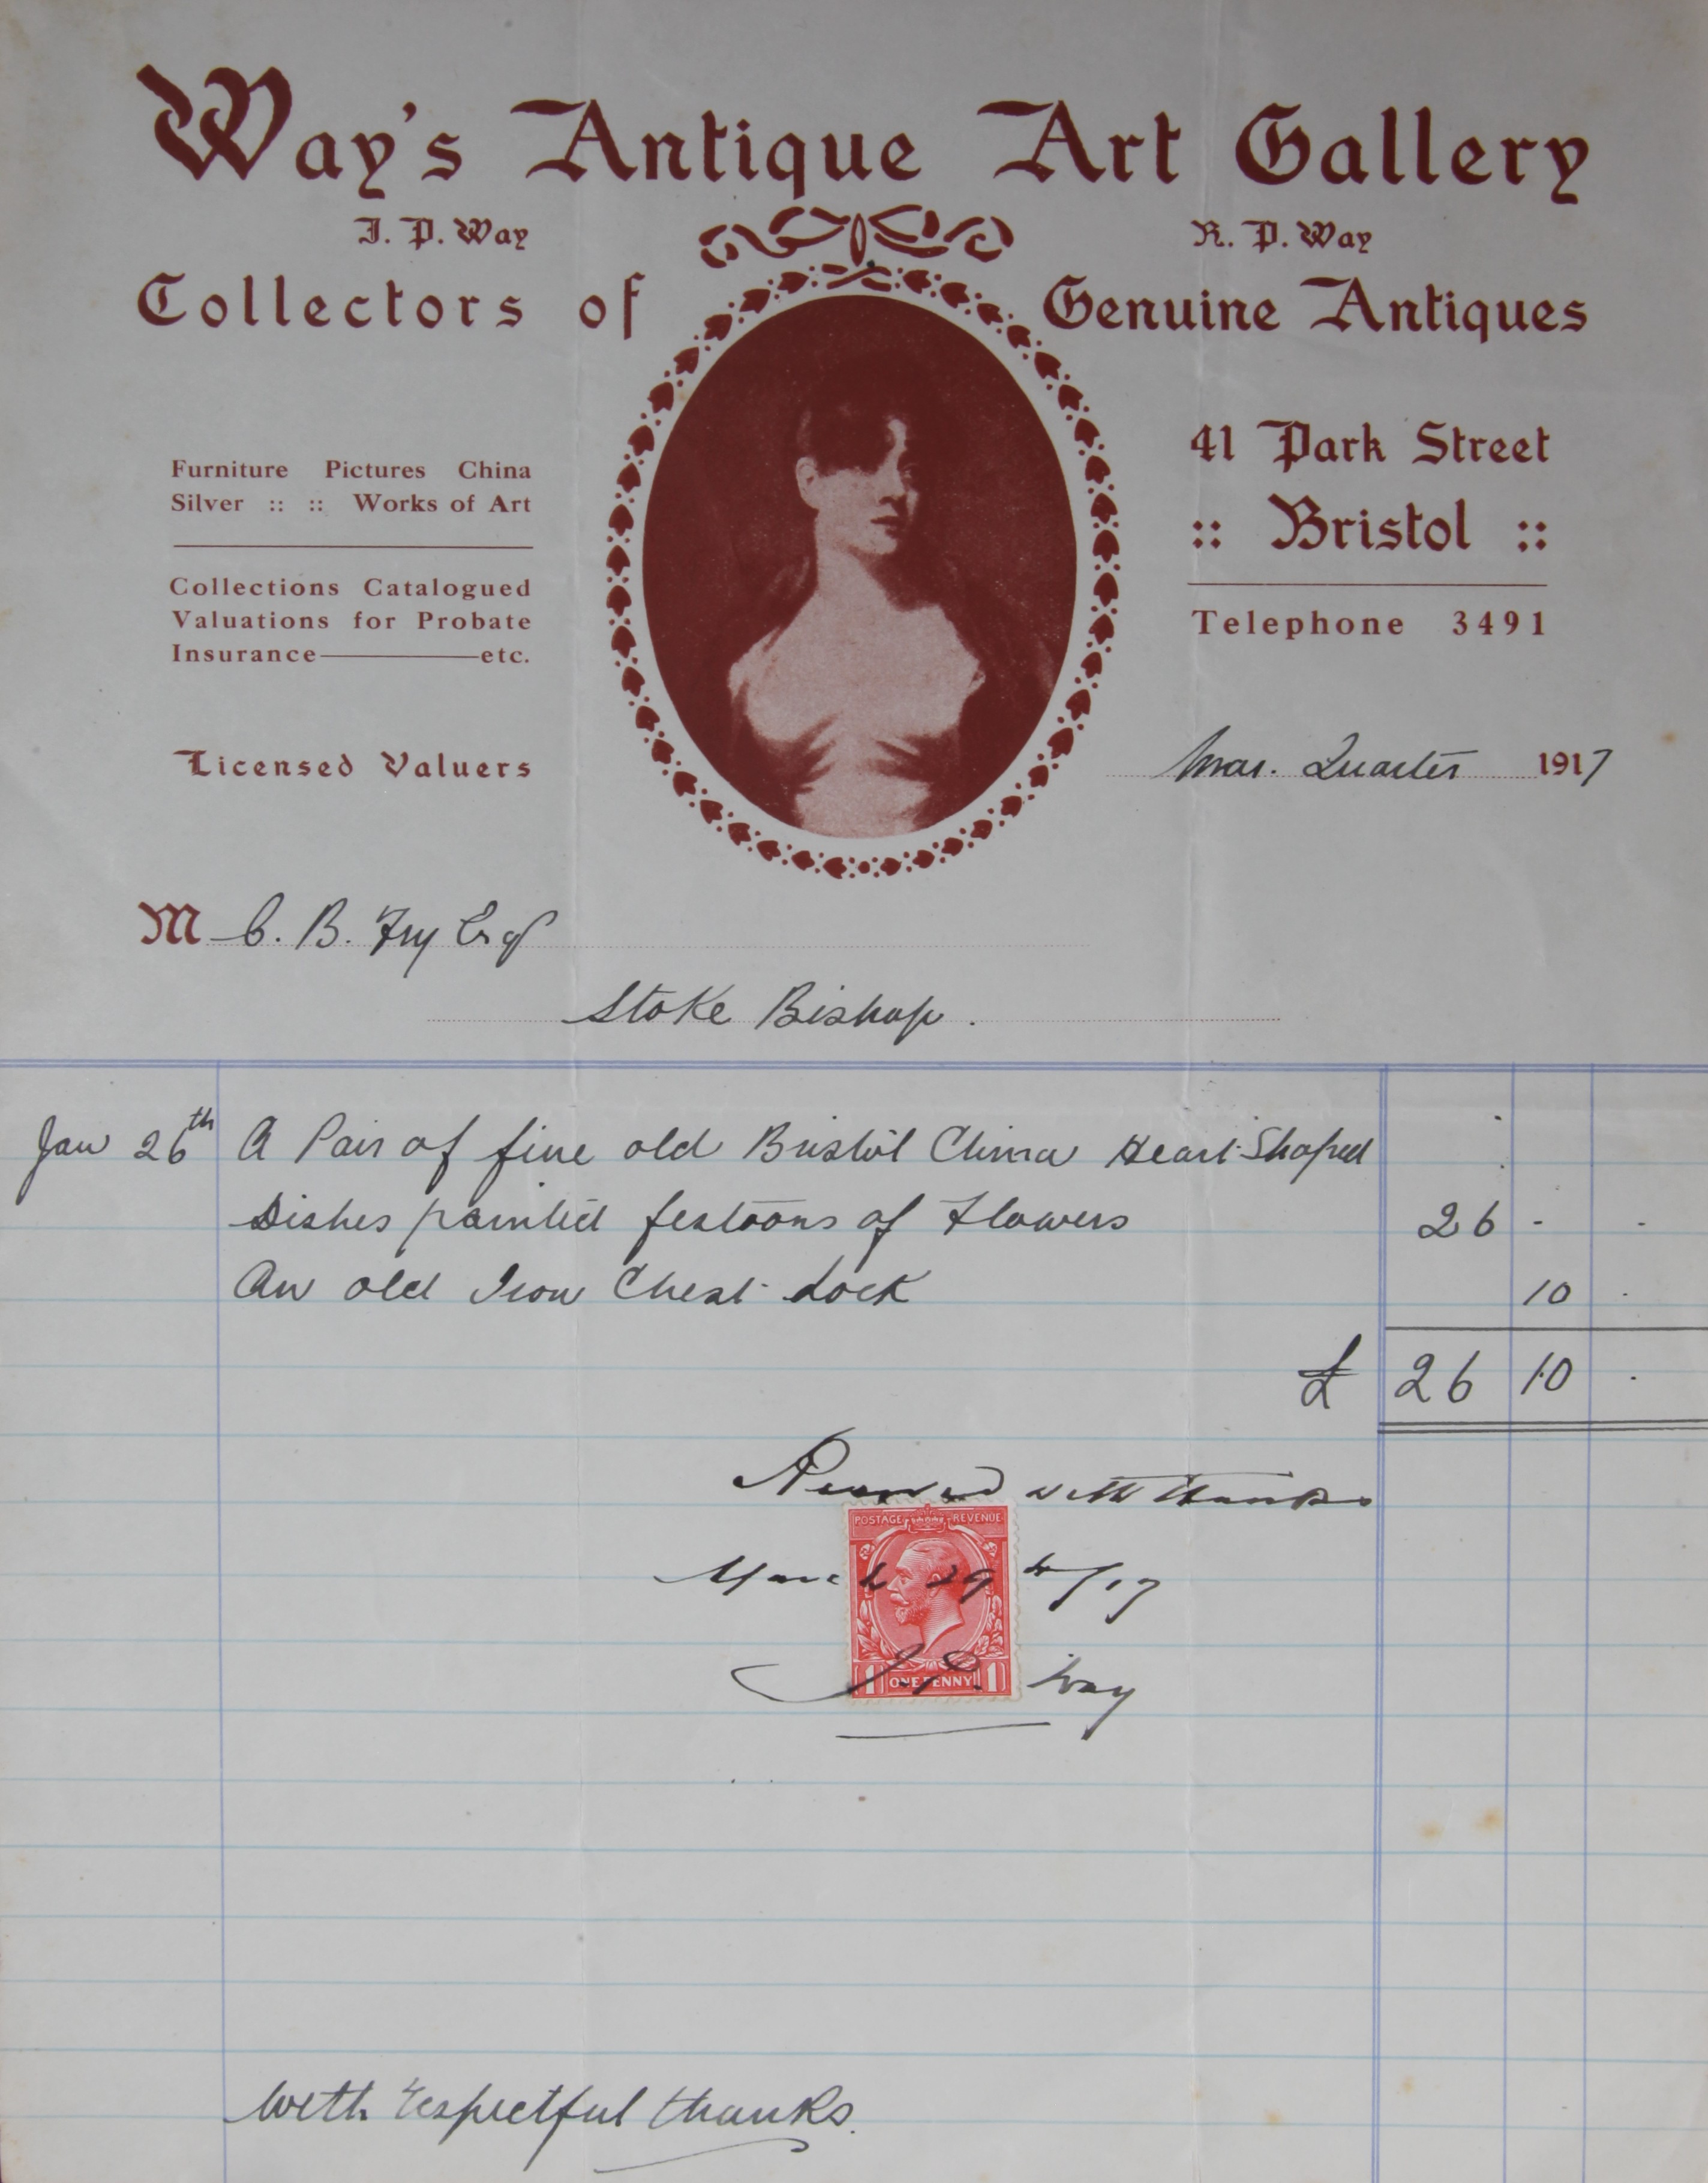 Way's Antique Art Gallery
J. P. Way
R. P. Way
Collectors of Genuine Antiques
Furniture Pictures China
Silver :: :: Works of Art
Collections Catalogued
Valuations for Probate
Insurance————etc.
Licensed Valuers
41 Park Street
:: Bristol ::
Telephone 3491
Mar. Quarter 1917
M C. B. Fry Esq
Stoke Bishop.
Jan 26th A Pair of fine old Bristol China Heart Shaped
Dishes painted festoons of Flowers 26 - -
An old Iron Chest Lock 10 .
£ 26 10 .
Received with thanks
POSTAGE REVENUE
March 29th/17
J. P. Way
1 ONE PENNY 1
With respectful thanks.